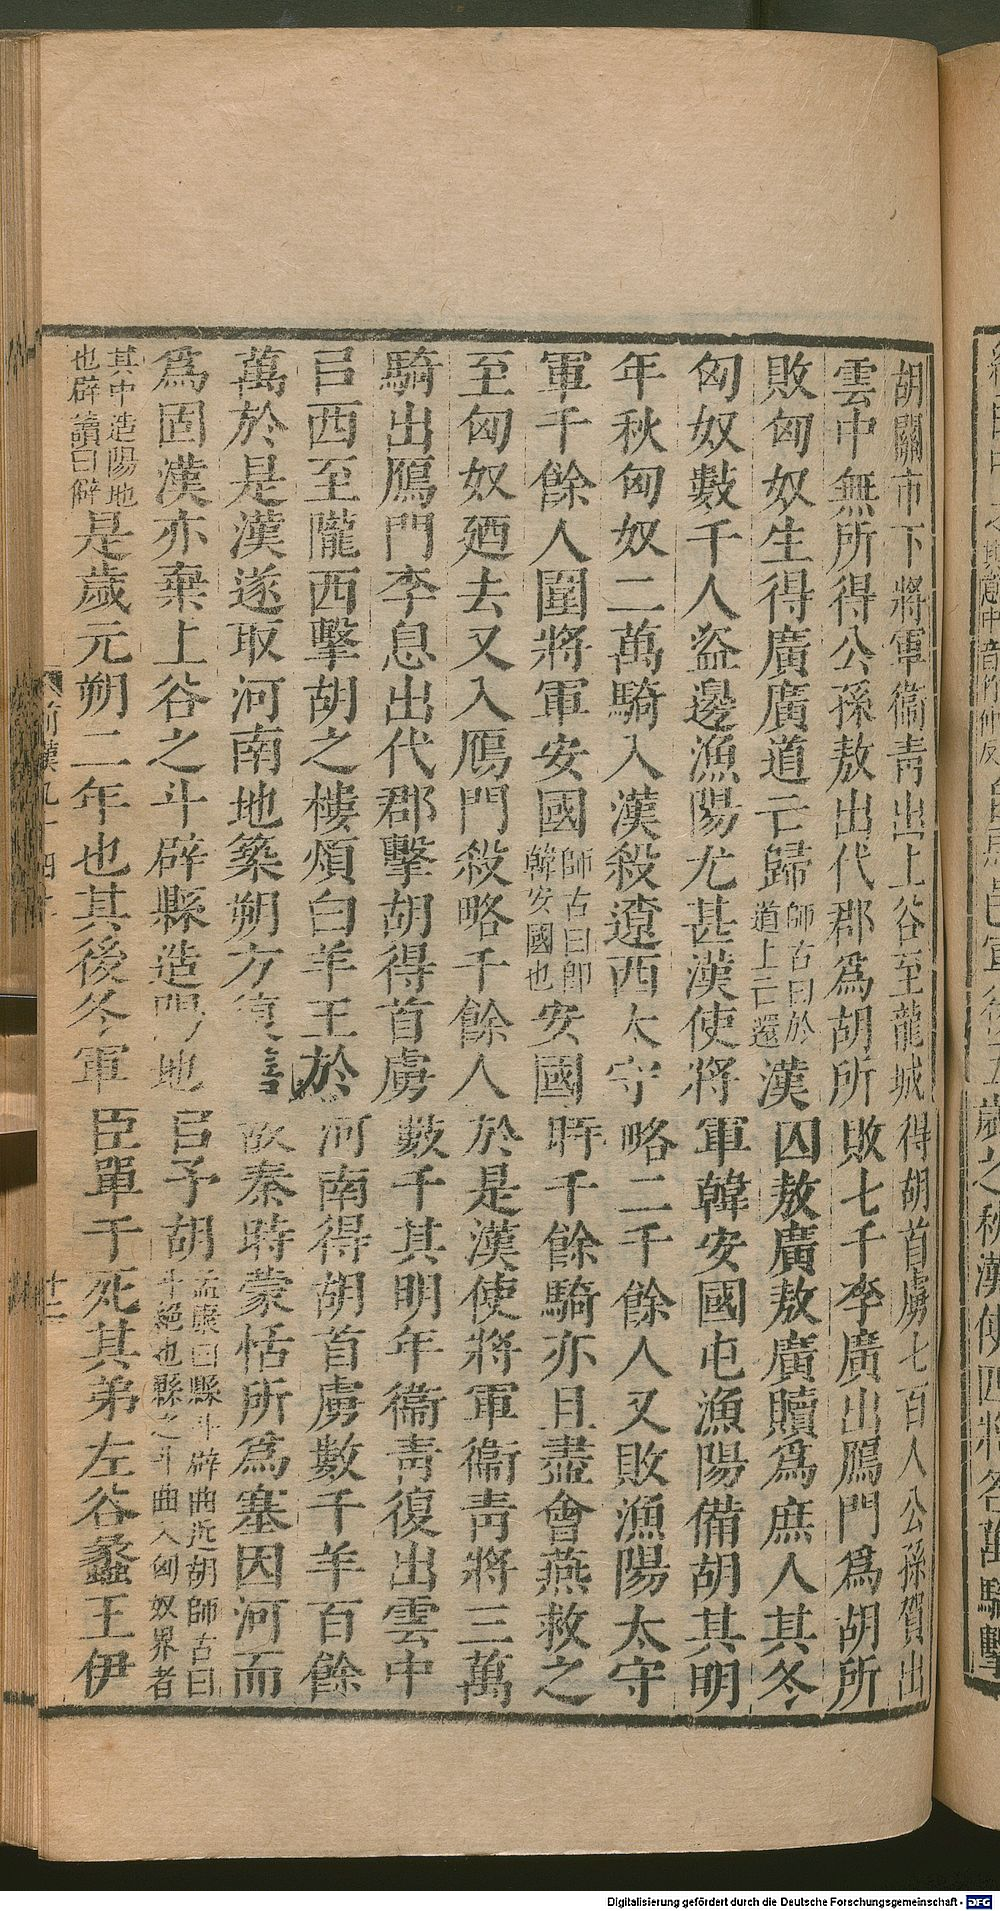 胡關市下將軍衞靑出上谷至龍城得胡首虜七百人公孫賀出
雲中無所得公孫敖出代郡爲胡所敗七千李廣出鴈門爲胡所
敗匈奴生得廣廣道亡歸師古曰於道上亡還漢囚敖廣敖廣贖爲庶人其冬
匈奴數千人盜邊漁陽尤甚漢使將軍韓安國屯漁陽備胡其明
年秋匈奴二萬騎入漢殺遼西太守略二千餘人又敗漁陽太守
軍千餘人圍將軍安國師古曰卽韓安國也安國時千餘騎亦且盡會燕救之
至匈奴廼去又入鴈門殺略千餘人於是漢使將軍衞靑將三萬
騎出鴈門李息出代郡擊胡得首虜數千其明年衞靑復出雲中
㠯西至隴西擊胡之樓煩白羊王於河南得胡首虜數千羊百餘
萬於是漢遂取河南地築朔方復繕故秦時蒙恬所爲塞因河而
爲固漢亦棄上谷之斗辟縣造陽地㠯予胡孟康曰縣斗辟曲近胡師古曰斗絕也縣之斗曲入匈奴界者
其中造陽地也辟讀曰僻是歲元朔二年也其後冬軍臣單于死其弟左谷蠡王伊
前漢九十四上
十二
Digitalisierung gefördert durch die Deutsche Forschungsgemeinschaft - DFG